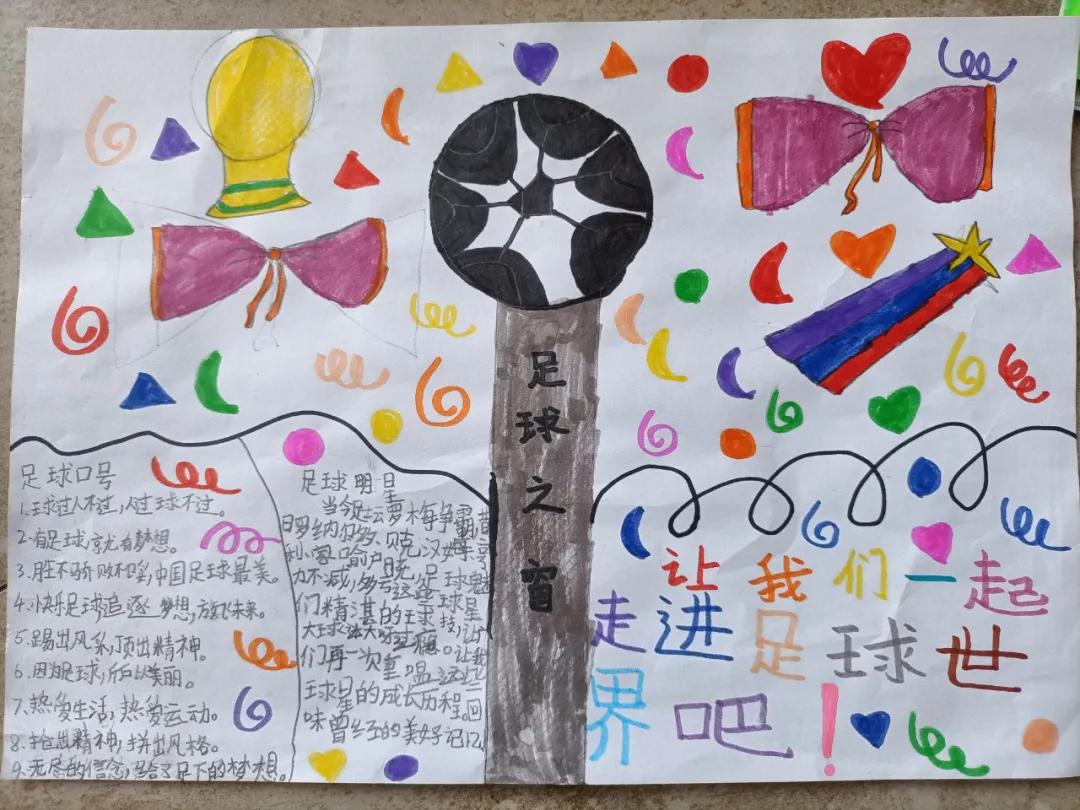 足球之窗
足球口号
1.球过人不过,人过球不过。
2.有足球,就有梦想。
3.胜不骄败不馁,中国足球最美。
4.快乐足球,追逐梦想,放飞未来。
5.踢出风采,顶出精神。
6.因为足球,所以美丽。
7.热爱生活,热爱运动。
8.拾出精神,拼出风格。
9.无尽的信念,足下的梦想。
足球明星
当今足坛梦梅争霸昔
日罗纳尔多贝克汉姆
利家喻户晓,足球魅
力不减,多亏这些球星
们精湛的球技,让
大球迷大呼过瘾。让我
们再一次重温这些
球星的成长历程,回
味曾经的美好记忆
让我们一起
走进足球世
界吧!